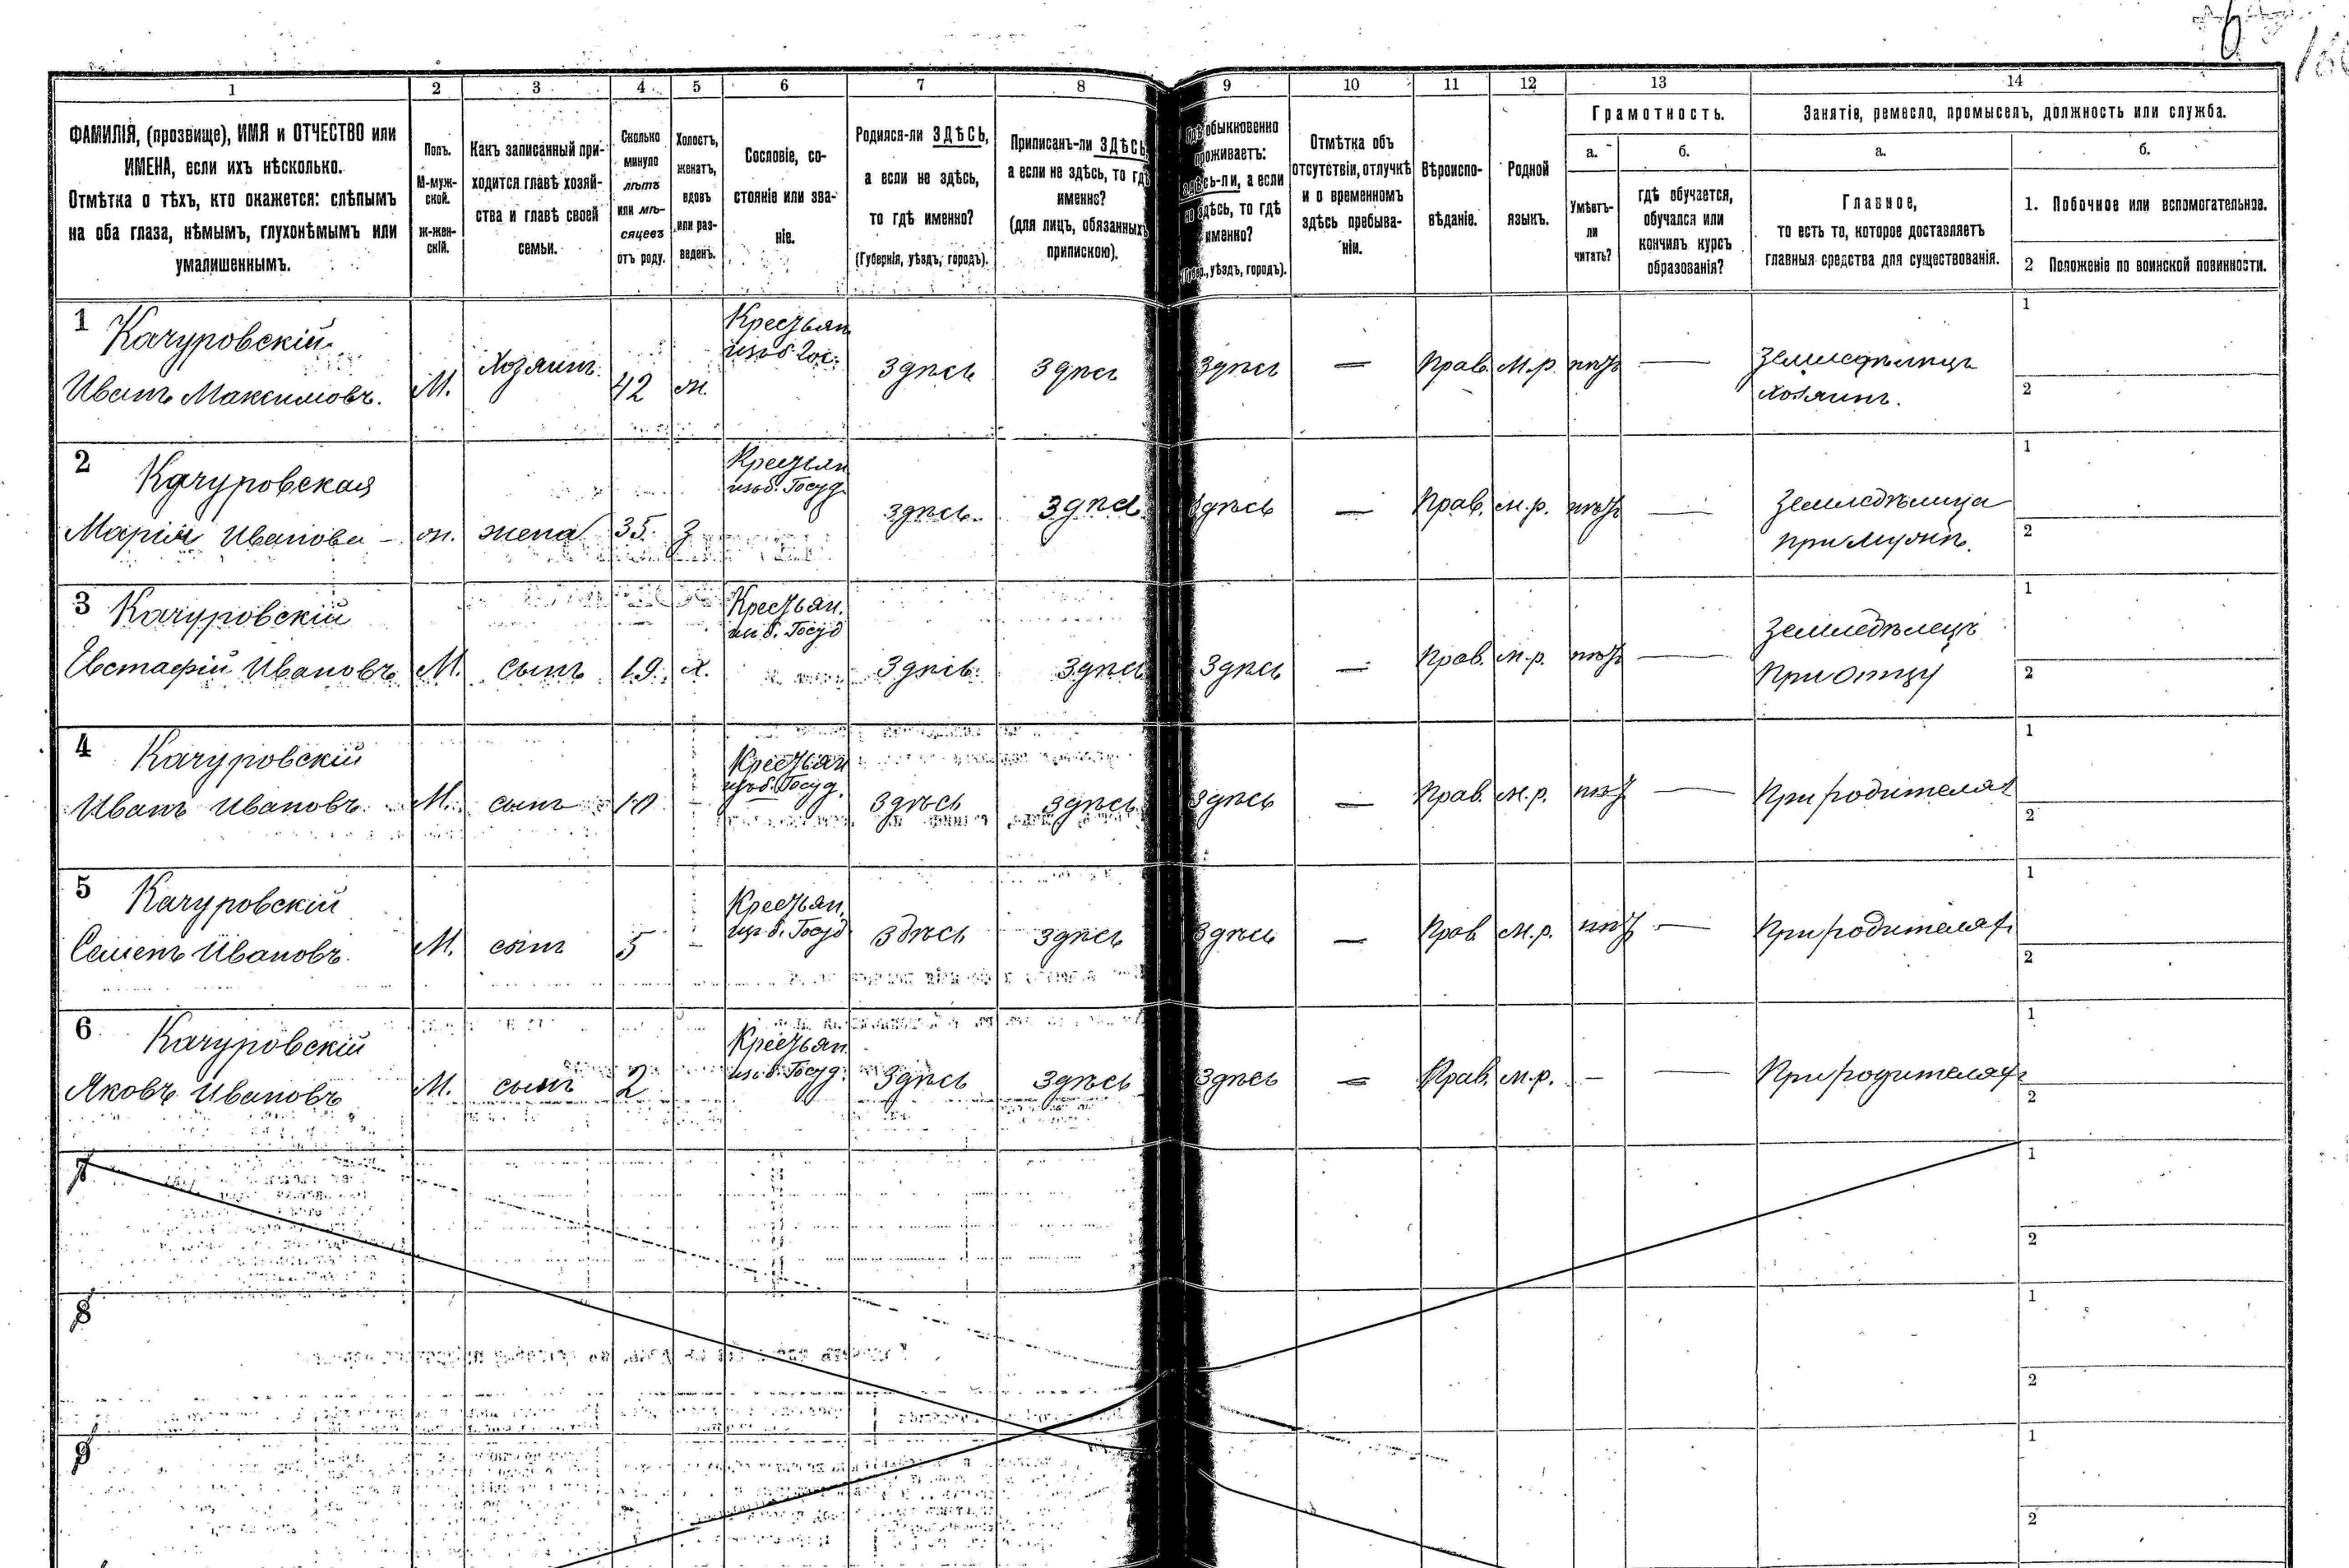 6
1 2 3 4 5 6 7 8 9 10 11 12 13 14
ФАМИЛІЯ, (прозвище), ИМЯ и ОТЧЕСТВО или
ИМЕНА, если ихъ нѣсколько.
Отмѣтка о тѣхъ, кто окажется: слѣпымъ
на оба глаза, нѣмымъ, глухонѣмымъ или
умалишеннымъ.
Полъ.
М-муж-
ской.
ж-жен-
скій.
Какъ записанный при-
ходится главѣ хозяй-
ства и главѣ своей
семьи.
Сколько
минуло
лѣтъ
или мѣ-
сяцевъ
отъ роду.
Холостъ,
женатъ,
вдовъ
или раз-
веденъ.
Сословіе, со-
стояніе или зва-
ніе.
Родился-ли ЗДѢСЬ,
а если не здѣсь,
то гдѣ именно?
(Губернія, уѣздъ, городъ).
Приписанъ-ли ЗДѢСЬ,
а если не здѣсь, то гдѣ
именно?
(для лицъ, обязанныхъ
припискою).
Гдѣ обыкновенно
проживаетъ:
здѣсь-ли, а если
не здѣсь, то гдѣ
именно?
(Губер., уѣздъ, городъ).
Отмѣтка объ
отсутствіи, отлучкѣ
и о временномъ
здѣсь пребыва-
ніи.
Вѣроиспо-
вѣданіе.
Родной
языкъ.
Грамотность.
а.
Умѣетъ-
ли
читать?
б.
гдѣ обучается,
обучался или
кончилъ курсъ
образованія?
Занятіе, ремесло, промыселъ, должность или служба.
а.
Главное,
то есть то, которое доставляетъ
главныя средства для существованія.
б.
1. Побочное или вспомогательное.
2 Положеніе по воинской повинности.
1 Качуровскій
Иванъ Максимовъ. М. Хозяинъ. 42 ж.
Крестьян
изъ б. Гос.
Здѣсь Здѣсь Здѣсь — Прав. М.р. нѣтъ —
Земледѣлецъ
хозяинъ.
1
2
2 Качуровская
Марія Иванова - ж. жена 35. з
Крестьян
изъ б. Госуд.
Здѣсь. Здѣсь. Здѣсь — Прав. м.р. нѣтъ —
Земледѣлица
при мужѣ.
1
2
3 Качуровскій
Евстафій Ивановъ М. сынъ 19. х.
Крестьян.
изъ б. Госуд
Здѣсь. Здѣсь Здѣсь — Прав. м.р. нѣтъ —
Земледѣлецъ
При отцу
1
2
4 Качуровскій
Иванъ Ивановъ. М. сынъ 10 -
Крестьян
изъ б. Госуд.
Здѣсь Здѣсь Здѣсь — Прав. м.р. нѣтъ — При родителях
1
2
5 Качуровскій
Семенъ Ивановъ. М. сынъ 5 -
Крестьян.
изъ б. Госуд
Здѣсь Здѣсь Здѣсь — Прав м.р. нѣтъ — При родителях
1
2
6 Качуровскій
Яковъ Ивановъ М. сынъ 2
Крестьян.
изъ б. Госуд.
Здѣсь Здѣсь Здѣсь — Прав. м.р. - — При родителях
1
2
7
1
2
8
1
2
9
1
2